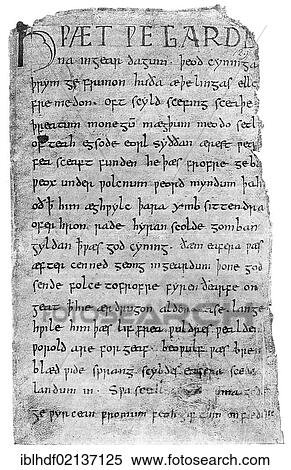 HǷÆT ǷE GARDE
na ingear dagum. þeod cyninga
þrym ge frunon huða æþelingas elle
fre medon. oft scyld scefing sceaþe
þreatum monegū mægþum meodo setl
of teah egsode eorl syððan ærest ƿea
fea sceaft funden he þæs frofre geba
ƿeox under ƿolcnum ƿeorð myndum þah
oð ꝥ him æghƿylc þara ymb sittendra
ofer hron rade hyran scolde gomban
gyldan ꝥ ƿæs god cyning. ðæm eafera ƿæs
æfter cenned geong ingeardum þone god
sende folce tofrofre fyren ðearfe on
geat ꝥ hie ær drugon aldor ase. lange
hƿile him þæs lif frea ƿuldres ƿealdend
ƿorold are for geaf. beoƿulf ƿæs breme
blæd ƿide sprang scyldes eafera scede
landum in. Sƿa sceal guma gode
ge ƿyrcean fromum feoh giftum on fæder
© fotosearch
iblhdf02137125 www.fotosearch.com